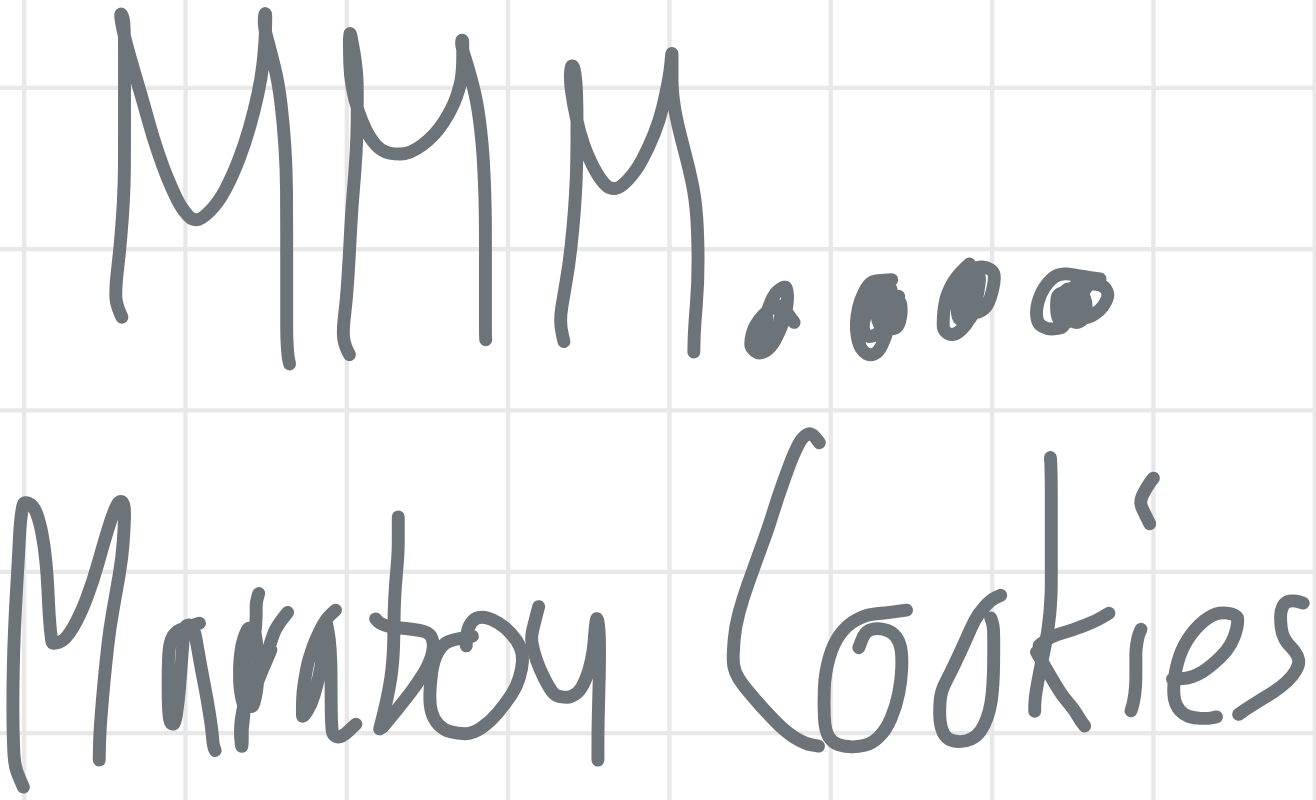 MMM....
Marabou Cookies